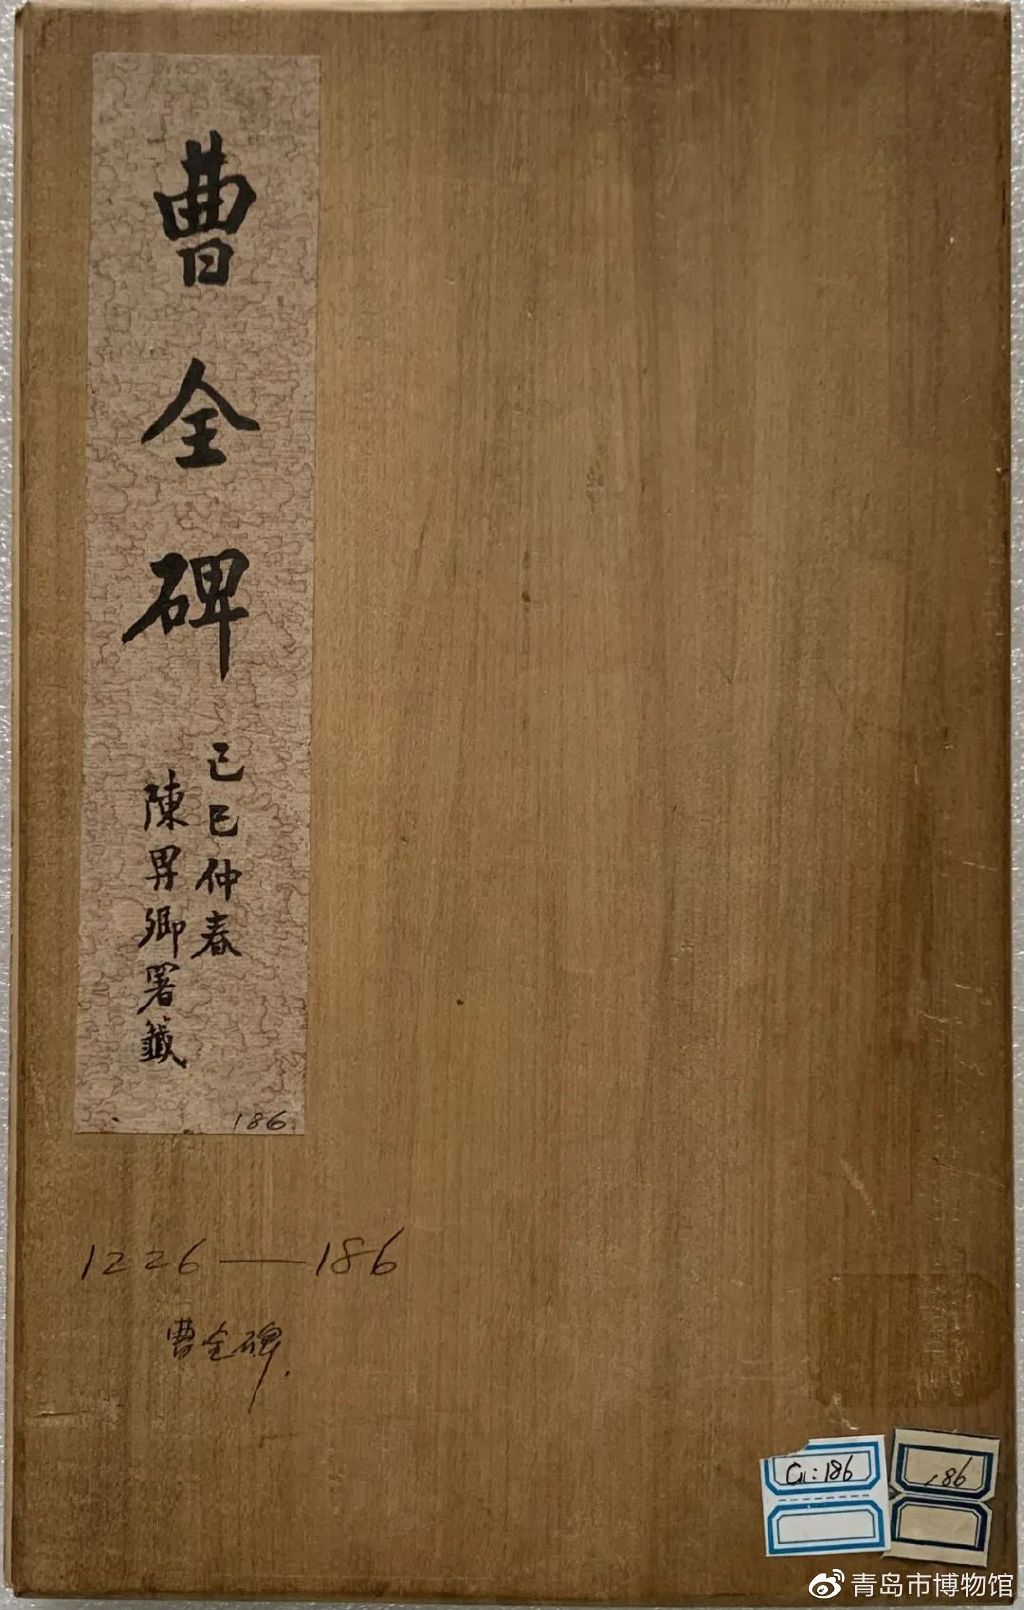 曹全碑
己巳仲春
陳畀卿署籤
186
1226—186
曹全碑.
G1:186
186
青岛市博物馆